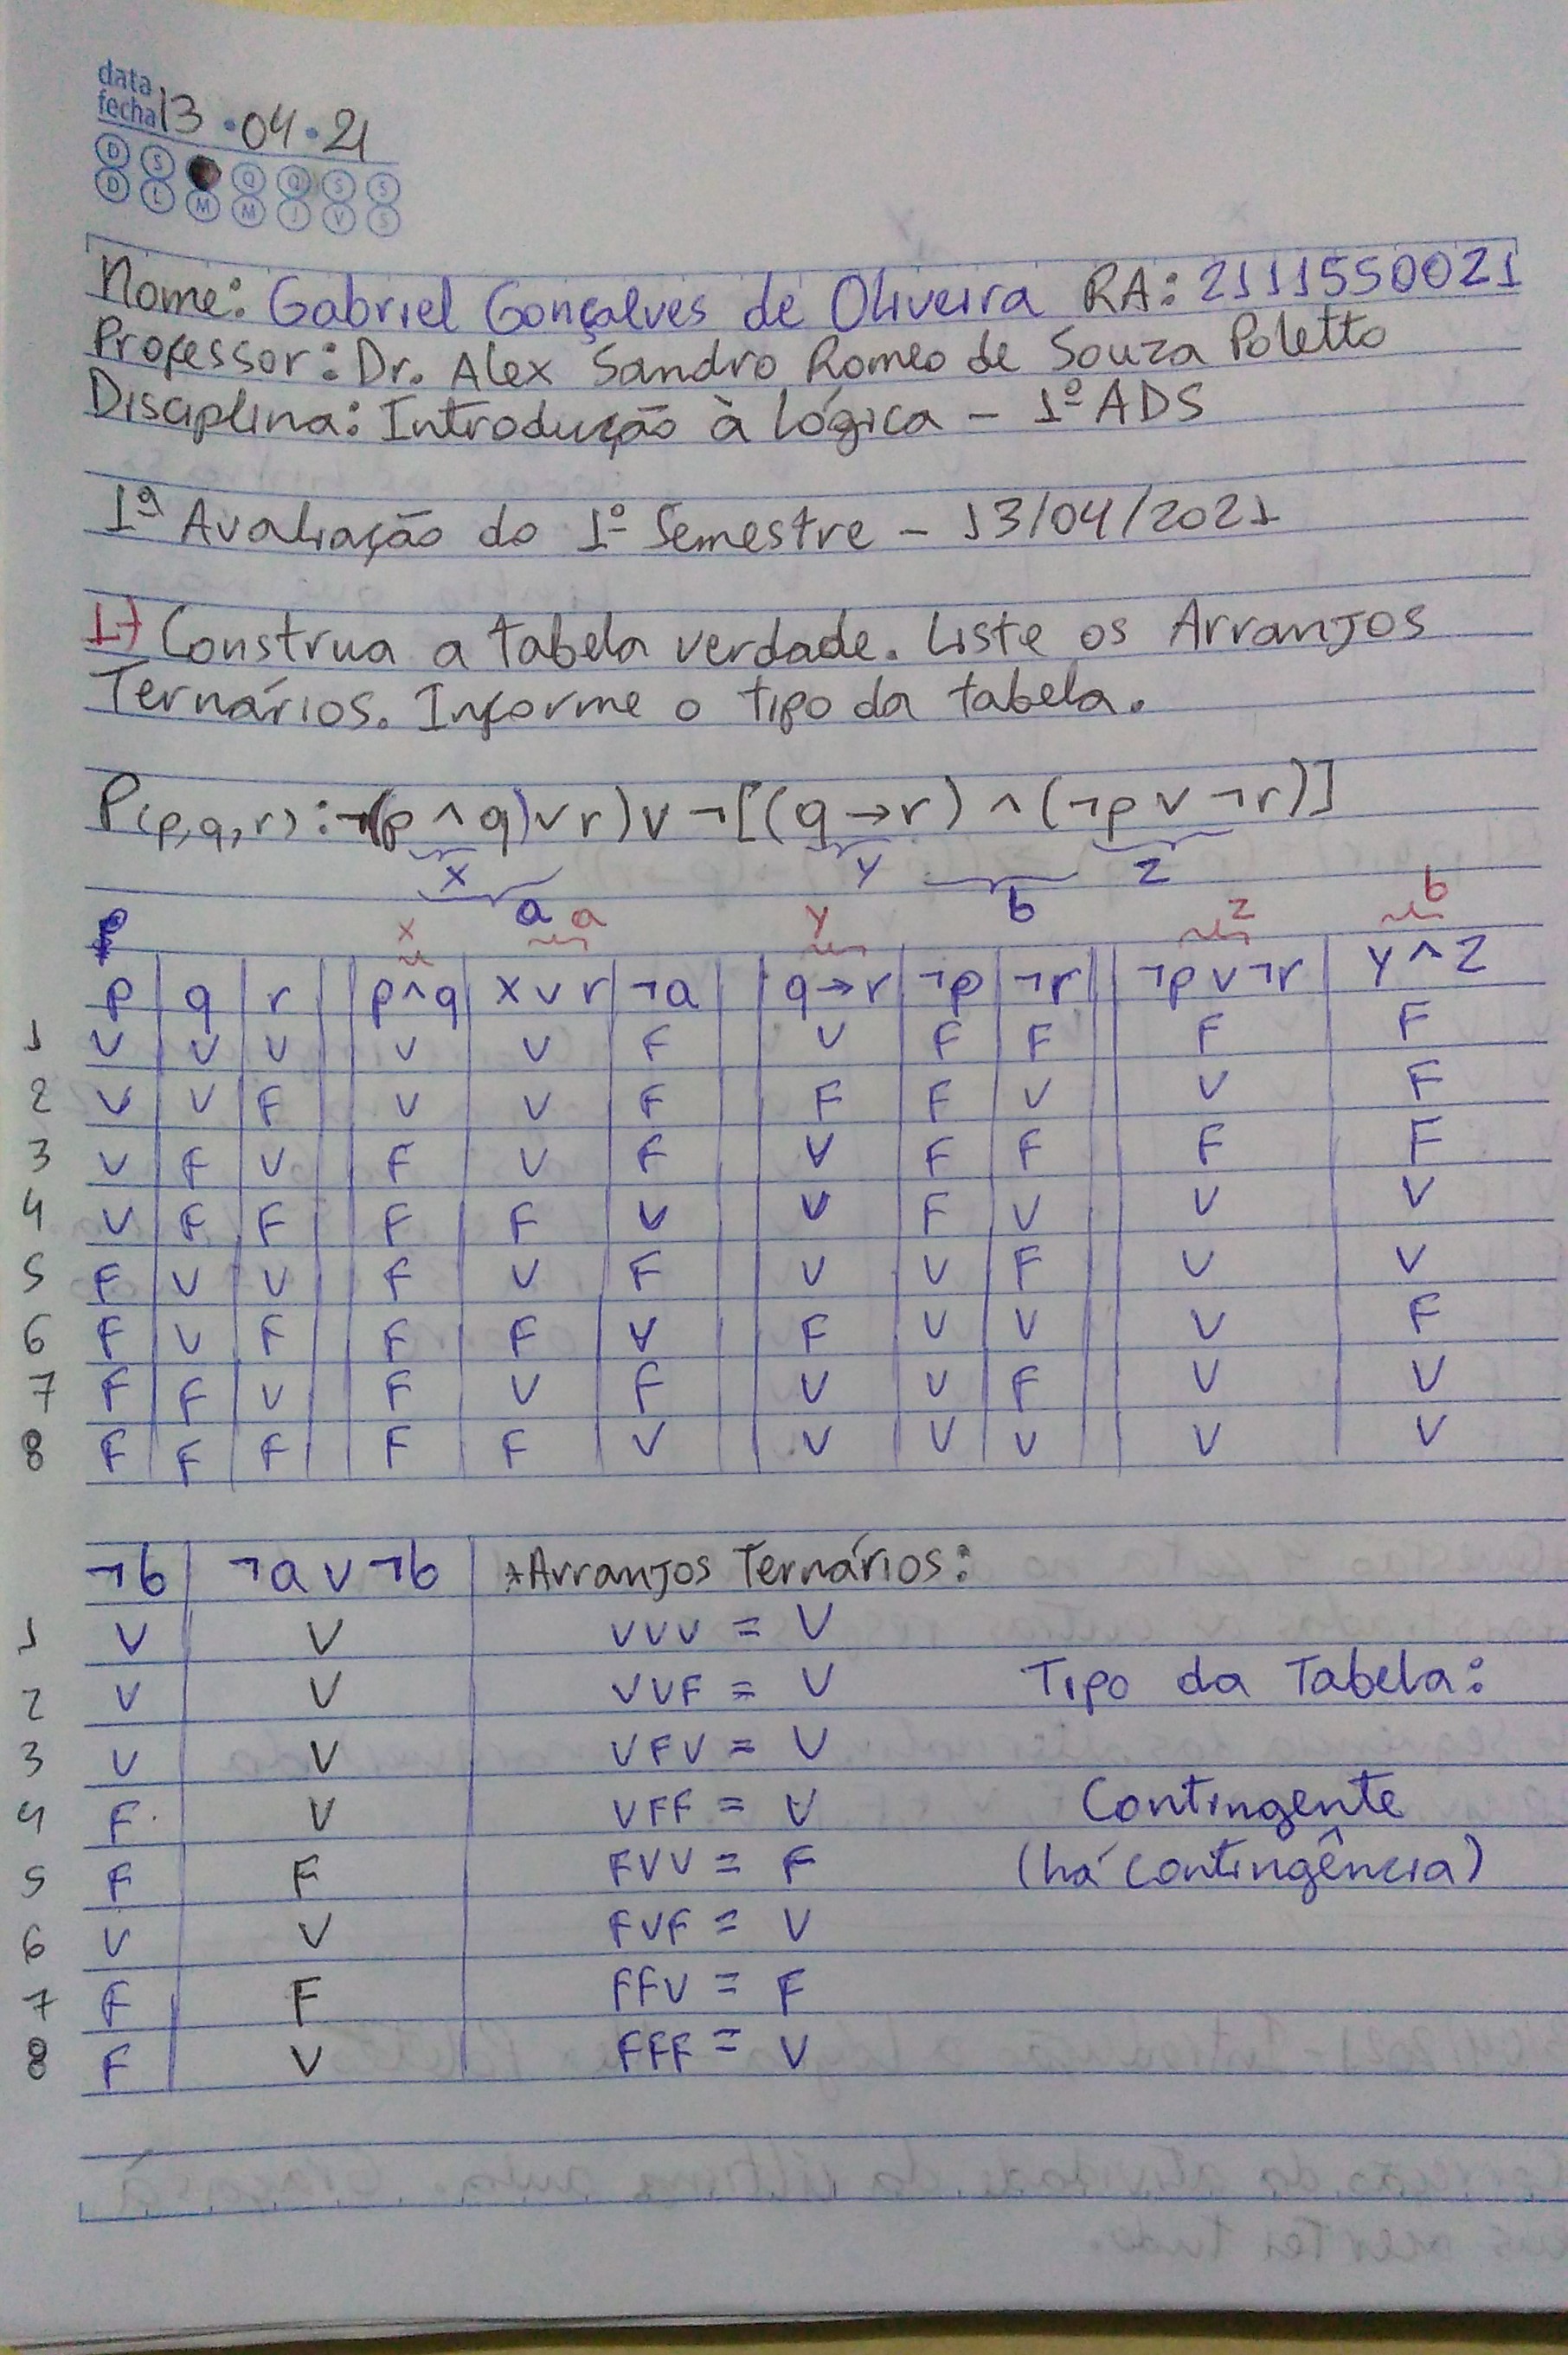 data
fecha 13 • 04 • 21
D S Q Q S S
D L M M J V S
Nome: Gabriel Gonçalves de Oliveira RA: 2111550021
Professor: Dr. Alex Sandro Romeo de Souza Poletto
Disciplina: Introdução à Lógica - 1º ADS
1ª Avaliação do 1º Semestre - 13/04/2021
1-) Construa a tabela verdade. Liste os Arranjos
Ternários. Informe o tipo da tabela.
P(p,q,r): ¬(p ∧ q) ∨ r) ∨ ¬[(q → r) ∧ (¬p ∨ ¬r)]
x y z
a b
x a y z b
p q r p∧q x∨r ¬a q→r ¬p ¬r ¬p∨¬r y∧z
1 V V V V V F V F F F F
2 V V F V V F F F V V F
3 V F V F V F V F F F F
4 V F F F F V V F V V V
5 F V V F V F V V F V V
6 F V F F F V F V V V F
7 F F V F V F V V F V V
8 F F F F F V V V V V V
¬b ¬a∨¬b *Arranjos Ternários:
1 V V VVV = V
2 V V VVF = V Tipo da Tabela:
3 V V VFV = V
4 F V VFF = V Contingente
5 F F FVV = F (há contingência)
6 V V FVF = V
7 F F FFV = F
8 F V FFF = V